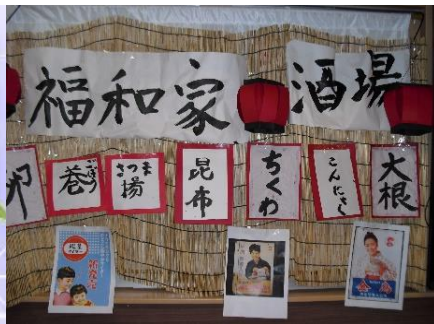 福和家 酒場
卵
ごぼう
巻
さつま
揚
昆布
ちくわ
こんにゃく
大根